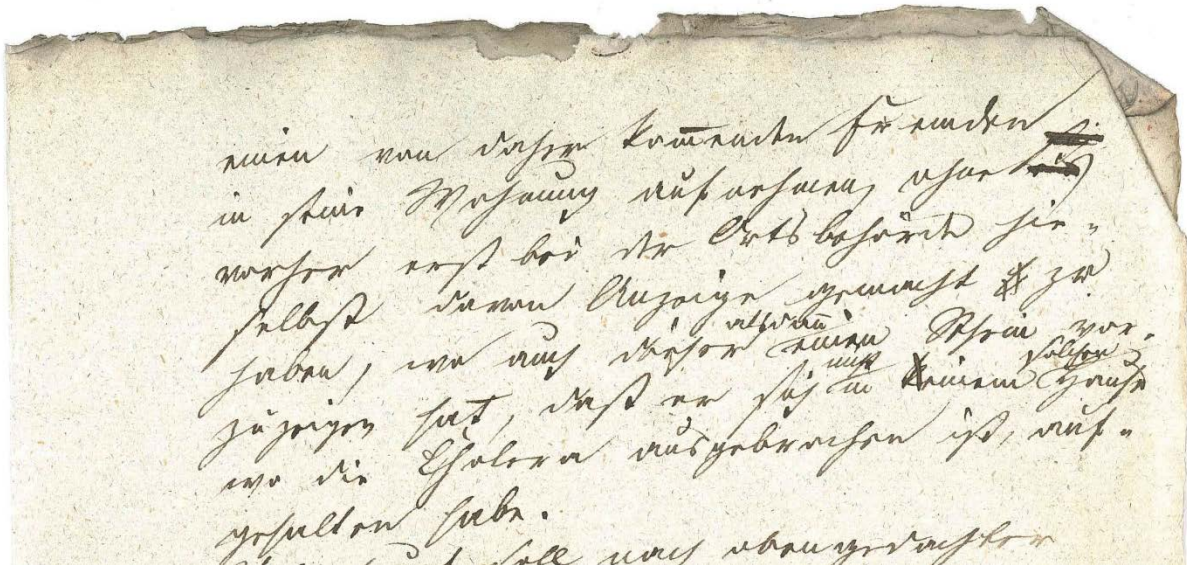 einen von daher kom̅enden Fremden
in seine Wohnung aufnehmen, ohne
vorher erst bei der Ortsbehörde hie-
selbst davon Anzeige gemacht zu
haben, wo auch dieser alsdan̅ einen Schein vor-
zuzeigen hat, daß er sich in keinem solchen Hause
wo die Cholera ausgebrochen ist, auf-
gehalten habe.
soll nach obengedachter